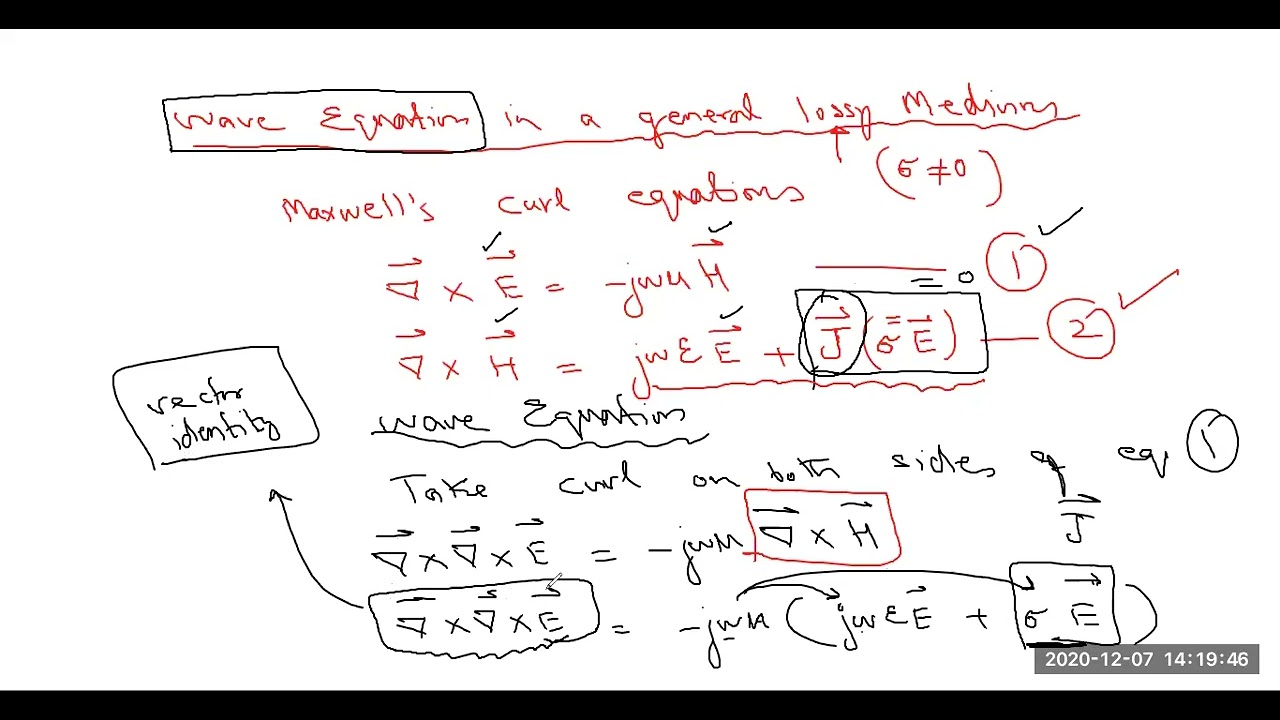 Wave Equation in a general lossy Medium
(σ ≠ 0)
Maxwell's curl equations
∇⃗ × E⃗ = -jωμ H⃗ = 0 ①
∇⃗ × H⃗ = jωε E⃗ + J⃗ (σ̿ E⃗) — ②
vector
identity
Wave Equation
Take curl on both sides of eq ①
J⃗
∇⃗ × ∇⃗ × E⃗ = -jωμ ∇⃗ × H⃗
∇⃗ × ∇⃗ × E⃗ = -jωμ (jωε E⃗ + σ E⃗)
2020-12-07 14:19:46